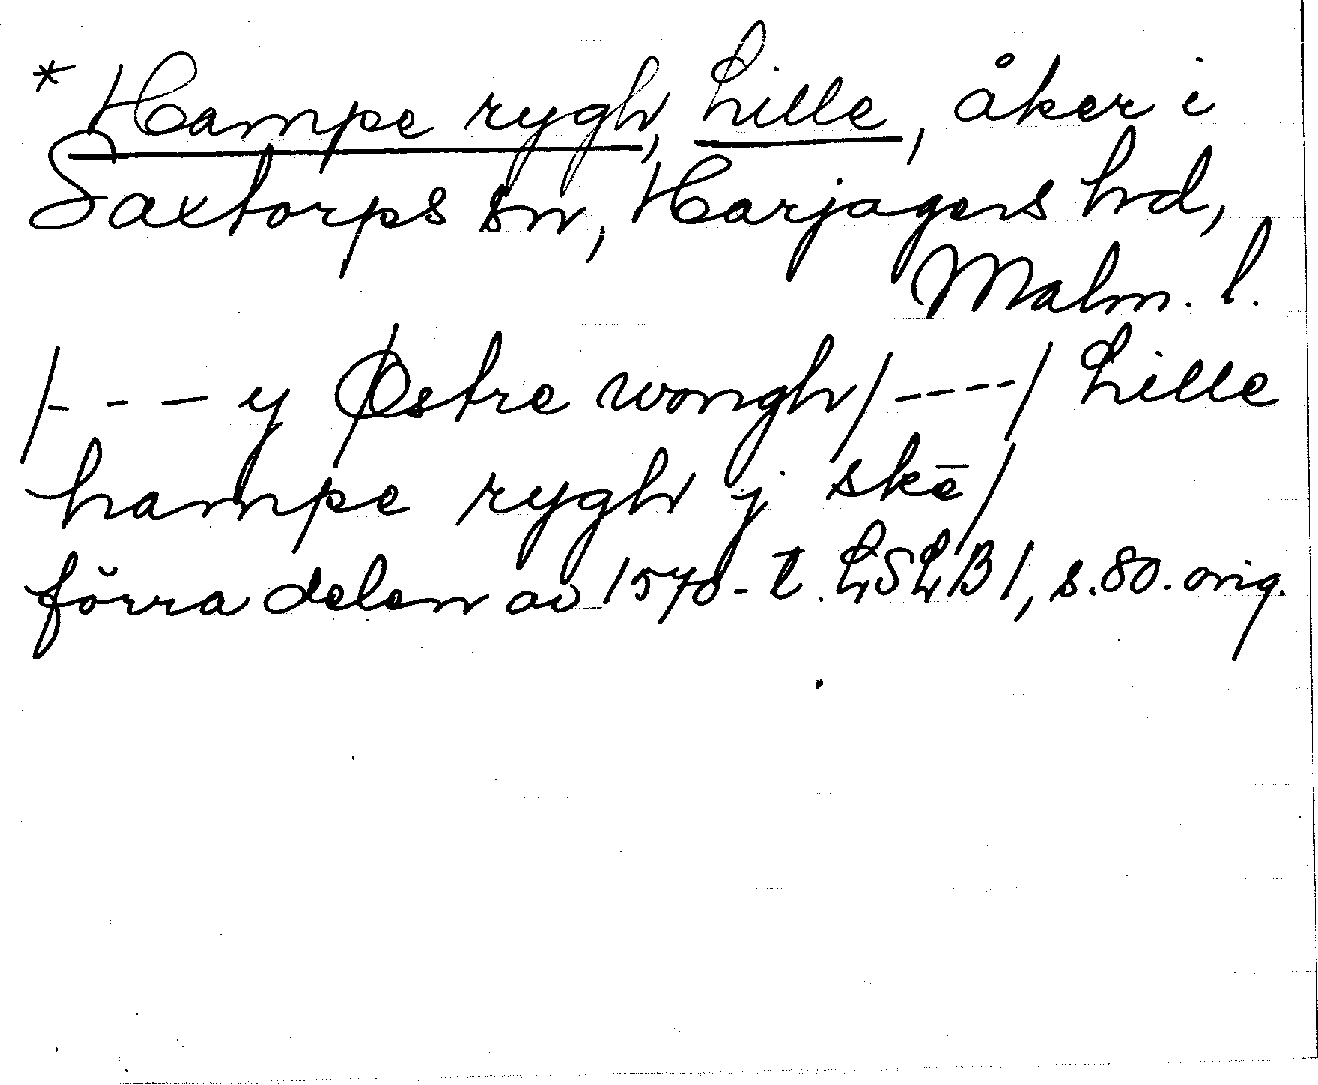 * Hampe rygh, Lille, åker i
Saxtorps sn, Harjagers hd,
Malm. l.
/- - - y Østre wongh/ - - - / Lille
hampe rygh j skē/
förra delen av 1570-t. LSLB 1, s. 80. orig.